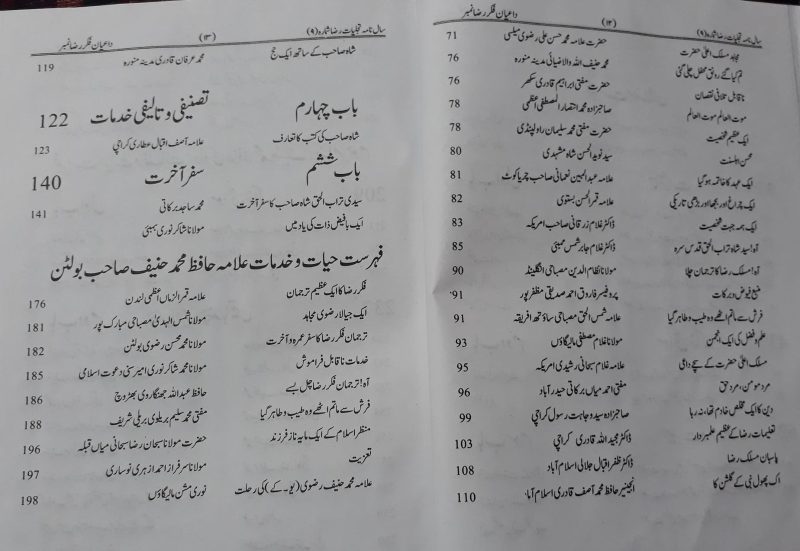 سال نامہ تجلیات رضا شمارہ (۹) (۱۲) داعیان فکر رضا نمبر
مجاہد مسلک اعلیٰ حضرت حضرت علامہ محمد حسن علی رضوی میلسی 71
تم کیا گئے رونق محفل چلی گئی محمد حنیف اللہ والا ضیائی مدینہ منورہ 76
ناقابل تلافی نقصان حضرت مفتی ابراہیم قادری سکھر 76
موت العالم موت العالم صاحبزادہ محمد اختصار المصطفیٰ اعظمی 78
ایک عظیم شخصیت حضرت مفتی محمد سلیمان راولپنڈی 78
محسن اہلسنت سید نوید الحسن شاہ مشہدی 80
ایک عہد کا خاتمہ ہو گیا علامہ عبد المبین نعمانی صاحب چریا کوٹ 81
ایک چراغ اور بجھا اور بڑھی تاریکی علامہ قمر الحسن بستوی 82
ایک ہمہ جہت شخصیت ڈاکٹر غلام زرقانی صاحب امریکہ 83
آہ! سید شاہ تراب الحق قدس سرہ ڈاکٹر غلام جابر شمس ممبئی 85
آہ! مسلک رضا کا ترجمان چلا مولانا نظام الدین مصباحی انگلینڈ 90
منبع فیوض و برکات پروفیسر فاروق احمد صدیقی مظفر پور 91
فرش سے ماتم اٹھے وہ طیب و طاہر گیا علامہ شمس الحق مصباحی ساؤتھ افریقہ 91
علم و فضل کی ایک انجمن مولانا غلام مصطفیٰ مالیگاؤں 93
مسلک اعلیٰ حضرت کے سچے داعی علامہ غلام سبحانی رشیدی امریکہ 95
مرد مومن، مرد حق مفتی احمد میاں برکاتی حیدرآباد 96
دین کا ایک مخلص خادم تھا، نہ رہا صاحبزادہ سید وجاہت رسول کراچی 99
تعلیمات رضا کے عظیم علمبردار ڈاکٹر مجید اللہ قادری کراچی 103
پاسبان مسلک رضا ڈاکٹر ظفر اقبال جلالی اسلام آباد 108
اک پھول نبی کے گلشن کا انجینیر حافظ محمد آصف قادری اسلام آباد 110
سال نامہ تجلیات رضا شمارہ (۹) (۱۳) داعیان فکر رضا نمبر
شاہ صاحب کے ساتھ ایک حج محمد عرفان قادری مدینہ منورہ 119
باب چہارم تصنیفی و تالیفی خدمات 122
شاہ صاحب کی کتب کا تعارف علامہ آصف اقبال عطاری کراچی 123
باب ششم سفر آخرت 140
سیدی تراب الحق شاہ صاحب کا سفر آخرت محمد ساجد برکاتی 141
ایک بافیض ذات کی یاد میں مولانا شاکر نوری ممبئی
فہرست حیات و خدمات علامہ حافظ محمد حنیف صاحب بولٹن
فکر رضا کا ایک عظیم ترجمان علامہ قمر الزماں اعظمی لندن 176
ایک جیالا رضوی مجاہد مولانا شمس الہدیٰ مصباحی مبارک پور 181
ترجمان فکر رضا کا سفر عمرہ و آخرت مولانا محمد محسن رضوی بولٹن 182
خدمات ناقابل فراموش مولانا محمد شاکر نوری امیر سنی دعوت اسلامی 185
آہ! ترجمان فکر رضا چل بسے حافظ عبد اللہ جھنگاروی بھڑوچ 186
فرش سے ماتم اٹھے وہ طیب و طاہر گیا مفتی محمد سلیم بریلوی بریلی شریف 188
منظر اسلام کے ایک مایہ ناز فرزند حضرت مولانا سبحان رضا سبحانی میاں قبلہ 196
تعزیت مولانا سرفراز احمد ازہری نوساری 197
علامہ محمد حنیف رضوی (یو۔کے) کی رحلت نوری مشن مالیگاؤں 198